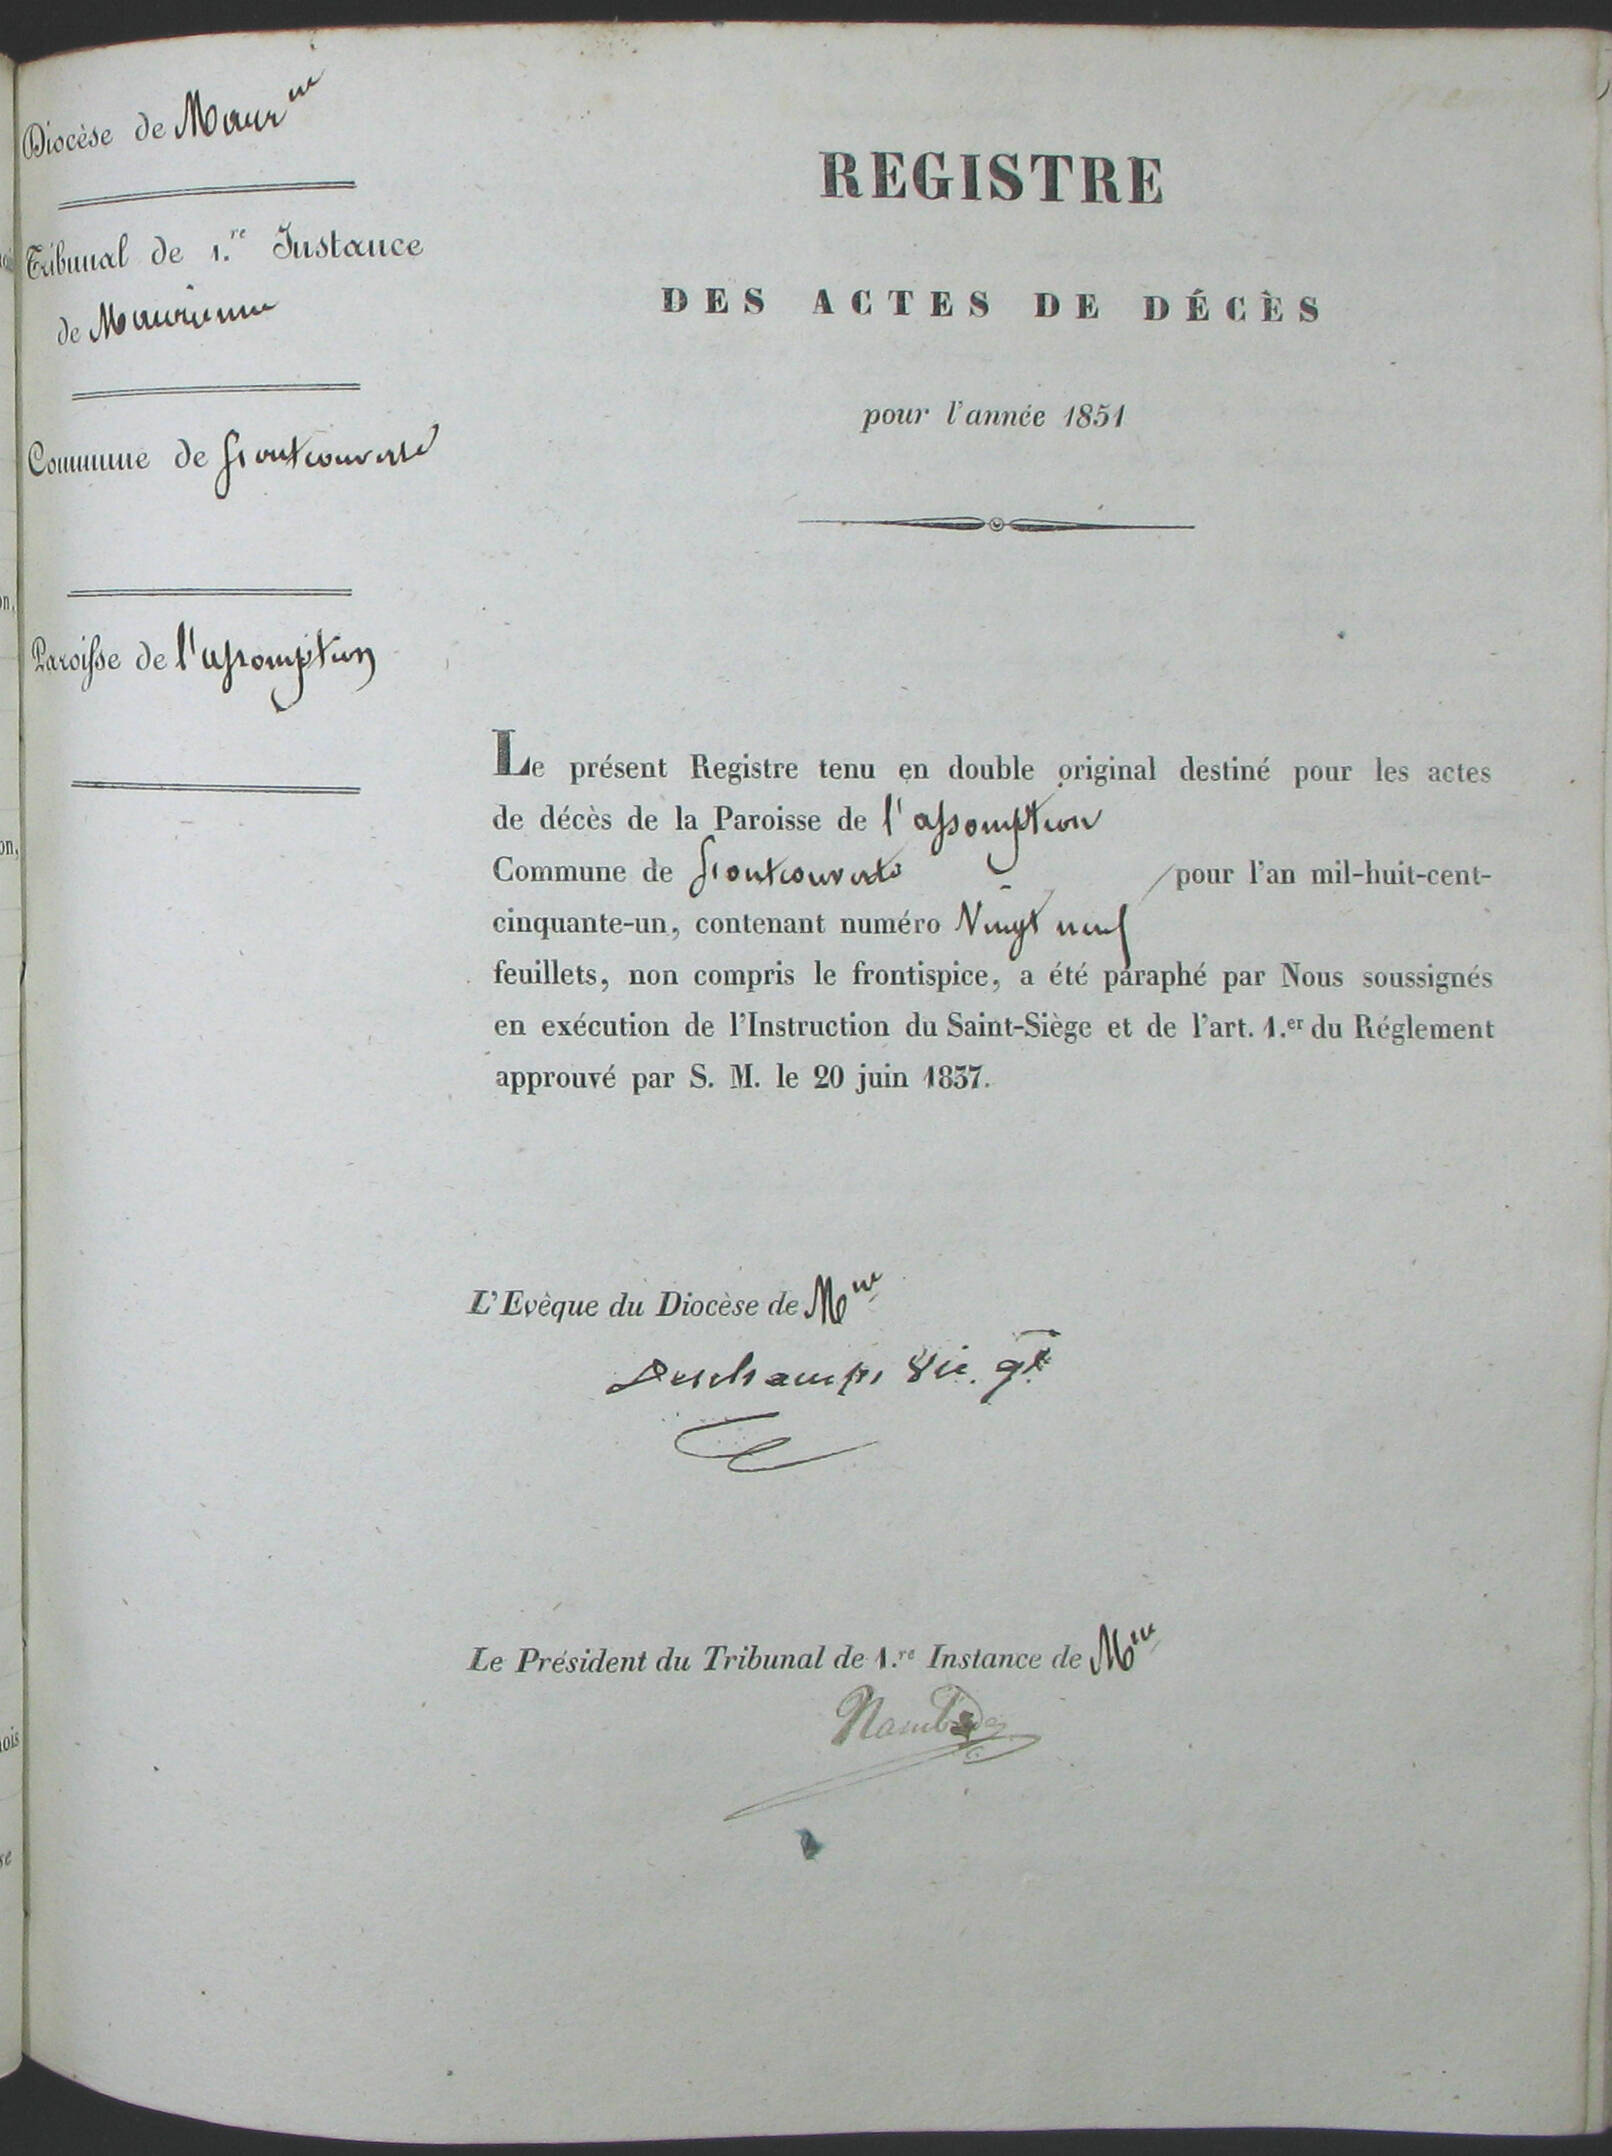 Diocèse de Maur^ne
Tribunal de 1.re Instance
de Maurienne
Commune de Fontcouverte
Paroisse de l'assomption
REGISTRE
DES ACTES DE DÉCÈS
pour l'année 1851
Le présent Registre tenu en double original destiné pour les actes
de décès de la Paroisse de l'assomption
Commune de Fontcouverte pour l'an mil-huit-cent-
cinquante-un, contenant numéro Vingt neuf
feuillets, non compris le frontispice, a été paraphé par Nous soussignés
en exécution de l'Instruction du Saint-Siège et de l'art. 1.er du Réglement
approuvé par S. M. le 20 juin 1837.
L'Evêque du Diocèse de M^ne
Deschamps Vic. g^l
Le Président du Tribunal de 1.re Instance de M^ne